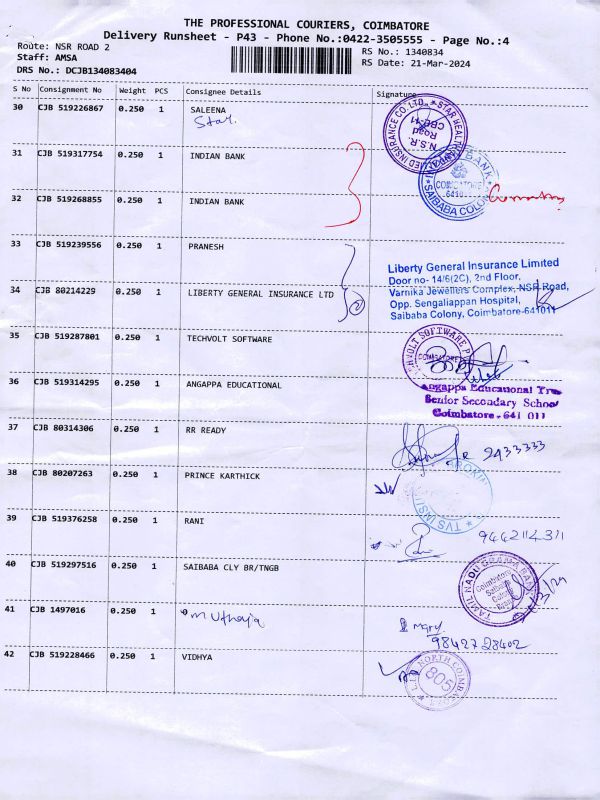 THE PROFESSIONAL COURIERS, COIMBATORE
Delivery Runsheet - P43 - Phone No.:0422-3505555 - Page No.:4
Route: NSR ROAD 2
RS No.: 1340834
Staff: AMSA
RS Date: 21-Mar-2024
DRS No.: DCJB134083404
S No Consignment No Weight PCS Consignee Details Signature
30 CJB 519226867 0.250 1 SALEENA
Star.
STAR HEALTH
INSURANCE CO. LTD.
N.S.R.
Road
CBE-11
31 CJB 519317754 0.250 1 INDIAN BANK
BANK
COIMBATORE
SAIBABA COLONY
32 CJB 519268855 0.250 1 INDIAN BANK
33 CJB 519239556 0.250 1 PRANESH
34 CJB 80214229 0.250 1 LIBERTY GENERAL INSURANCE LTD
2
Liberty General Insurance Limited
Door no- 14/6(2C), 2nd Floor,
Varnika Jewellers Complex, NSR Road,
Opp. Sengaliappan Hospital,
Saibaba Colony, Coimbatore-641011
35 CJB 519287801 0.250 1 TECHVOLT SOFTWARE
TECHVOLT SOFTWARE
COIMBATORE
36 CJB 519314295 0.250 1 ANGAPPA EDUCATIONAL
Angappa Educational Trus
Senior Secondary School
Coimbatore - 641 011
37 CJB 80314306 0.250 1 RR READY
9433333
38 CJB 80207263 0.250 1 PRINCE KARTHICK
39 CJB 519376258 0.250 1 RANI
9442114311
40 CJB 519297516 0.250 1 SAIBABA CLY BR/TNGB
TAMIL NADU GRAMA BANK
Coimbatore
Saibaba
Colony
41 CJB 1497016 0.250 1
98427 28402
42 CJB 519228466 0.250 1 VIDHYA
NORTH COIMB
805